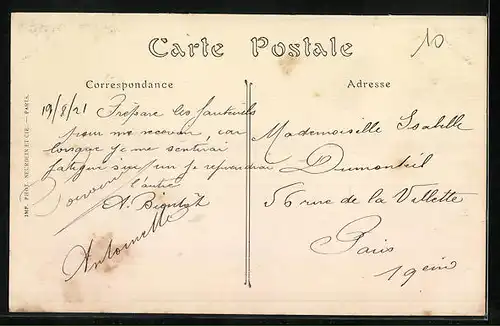 Carte Postale
10
Correspondance
Adresse
19/8/21 Prépare les fauteuils
pour me recevoir, car
lorsque je me sentirai
fatigué sur un je reprendrai
l'autre
A. Bientôt
Antoinette
Mademoiselle Isabelle
Dumonteil
56 rue de la Villette
Paris
19eme
IMP. PHOT. NEURDEIN ET CIE. — PARIS.